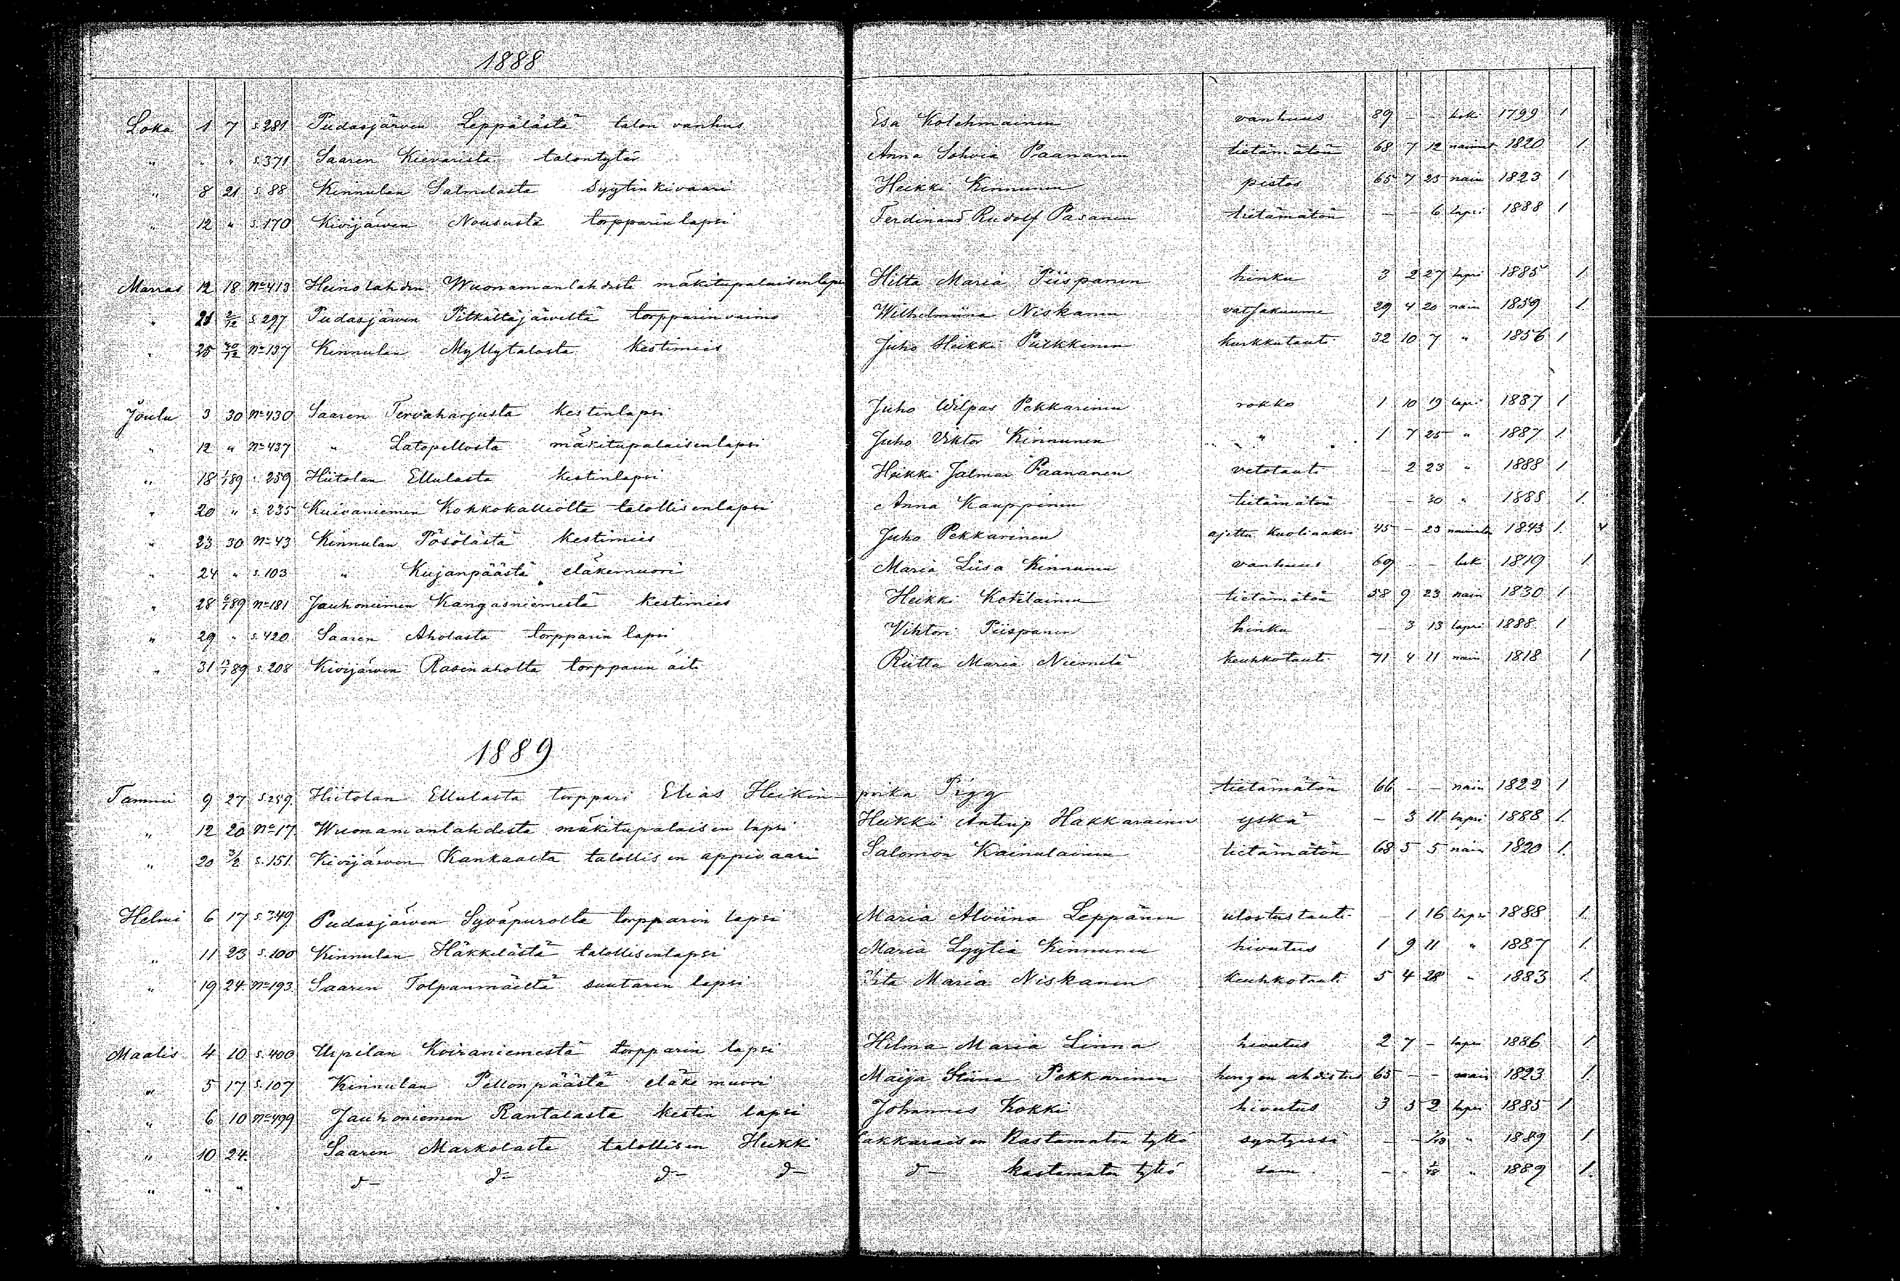 1888
Loka 1 7 s.281 Pudasjärven Leppälästä talon vanhus Esa Kolehmainen vanhuus 89 - - leski 1799 1
" " " s.371 Saaren Kievarista talontytär Anna Sohvia Paananen tietämätön 68 7 12 naimat 1820 1
" 8 21 s.88 Kinnulan Salmelasta Syytinkivaari Heikki Kinnunen pistos 65 7 25 nain 1823 1
" 12 " s.170 Kivijärven Nousus­ta torpparin lapsi Ferdinand Rudolf Pasanen tietämätön - - 6 lapsi 1888 1
Marras 12 18 No 413 Heinolahden Wuonamanlahdesta mäkitupalaisenlapsi Hilta Maria Piispanen hinku 3 2 27 lapsi 1885 1
" 21 2/12 s.297 Pudasjärven Pitkältäjärveltä torpparinvaimo Wilhelmiina Niskanen vatsakuume 29 4 20 nain 1859 1
" 25 No 137 Kinnulan Myllytalosta kestimies Juho Heikki Pulkkinen kurkkutauti 32 10 7 " 1856 1
Joulu 3 30 No 430 Saaren Tervaharjusta kestinlapsi Juho Wilpas Pekkarinen rokko 1 10 19 lapsi 1887 1
" 12 " No 437 " Latopellosta mäkitupalaisenlapsi Juho Viktor Kinnunen " 1 7 25 " 1887 1
" 18 1/89 s.259 Hiitolan Ellulasta kestinlapsi Heikki Jalmar Paananen vetotauti - 2 23 " 1888 1
" 20 " s.235 Kuivaniemen Kokkokalliolta talollisenlapsi Anna Kauppinen tietämätön - - 30 " 1888 1
" 23 30 No 43 Kinnulan Pösölästä kestimies Juho Pekkarinen ajettu kuoliaaksi 45 - 23 naimaton 1843 1
" 24 " s.103 " Kujanpäästä eläkemuori Maria Liisa Kinnunen vanhuus 69 - - lesk 1819 1
" 28 6/89 No 181 Jauhoniemen Kangasniemestä kestimies Heikki Kotilainen tietämätön 58 9 23 nain 1830 1
" 29 " s.420 Saaren Aholasta torpparin lapsi Vihtori Piispanen hinku - 3 13 lapsi 1888 1
" 31 s.208 Kivijärven Rasinaholta torpparin äiti Riitta Maria Niemelä keuhkotauti 71 4 11 nain 1818 1
1889
Tammi 9 27 s.259 Hiitolan Ellulasta torppari Elias Heikinpoika Pigg tietämätön 66 - - nain 1822 1
" 12 20 No 17 Wuonamanlahdesta mäkitupalaisen lapsi Heikki Anttip Hakkarainen yskä - 3 11 lapsi 1888 1
" 20 3/2 s.151 Kivijärven Kankaalta talollisen appivaari Salomon Kainulainen tietämätön 68 5 5 nain 1820 1
Helmi 6 17 s.349 Pudasjärven Syväpurolta torpparin lapsi Maria Alviina Leppänen ulostustauti - 1 16 lapsi 1888 1
" 11 23 s.100 Kinnulan Häkkilästä talollisenlapsi Maria Lyytia Kinnunen hivutus 1 9 11 " 1887 1
" 19 24 No 193 Saaren Tolpanmäeltä suutarin lapsi Iita Maria Niskanen keuhkotauti 5 4 28 " 1883 1
Maalis 4 10 s.400 Urpilan Koiraniemestä torpparin lapsi Hilma Maria Linna hivutus 2 7 - lapsi 1886 1
" 5 17 s.107 Kinnulan Pellonpäästä eläkemuori Maija Stiina Pekkarinen hengen ahdistus 65 - - nain 1823 1
" 6 10 No 499 Jauhoniemen Rantalasta kestin lapsi Johannes Kokki hivutus 3 5 2 lapsi 1885 1
" 10 24 Saaren Markolasta talollisen Heikki Hakkaraisen Kastamaton tyttö syntyessä - - " 1889 1
" " " d- d- d- d- d- kastamaton tyttö sam. - - " 1889 1